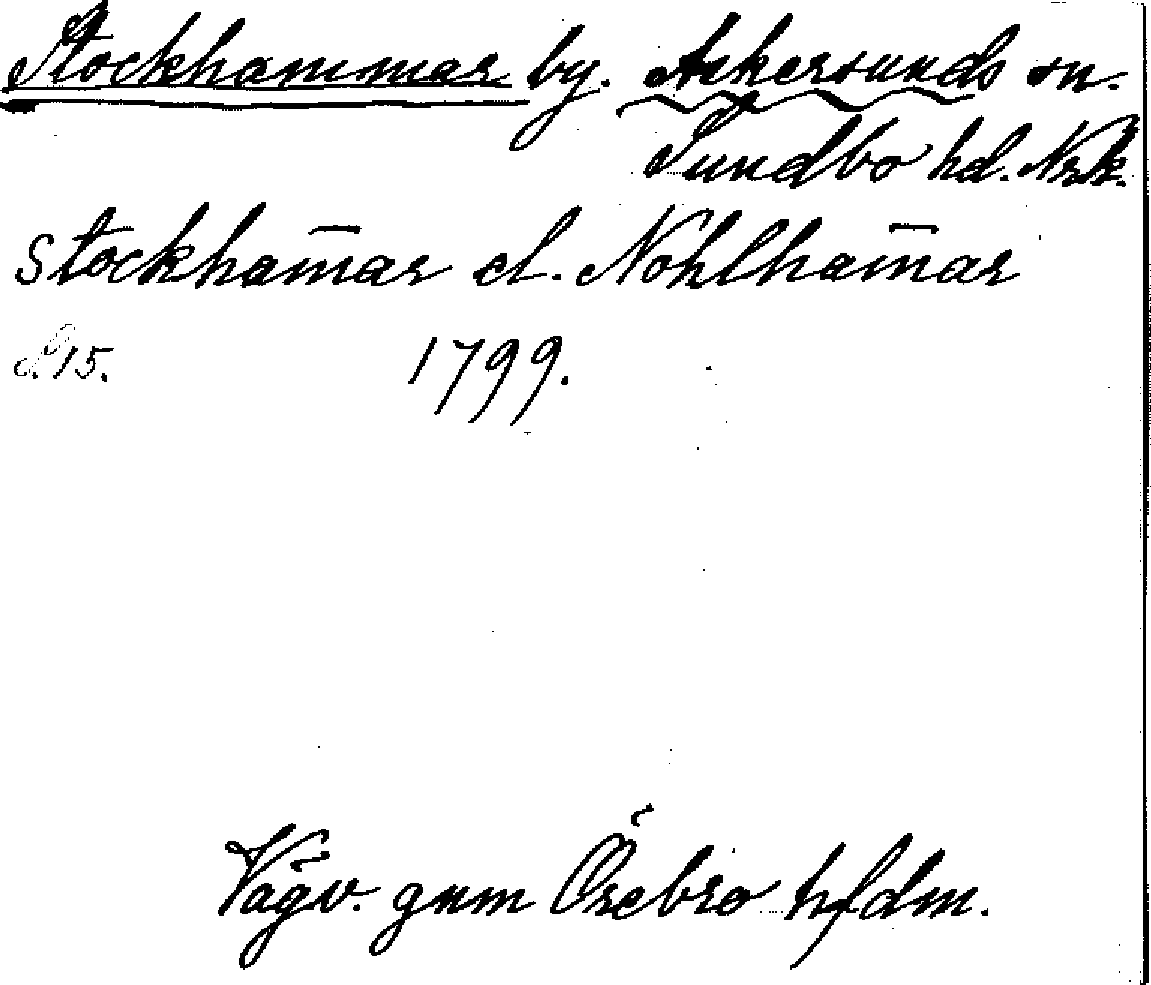 Stockhammar by. Askersunds sn.
Sundbo hd. Nrk.
Stockham̄ar el. Nohlham̄ar
S. 15. 1799.
Vägv. gnm Örebro hfdm.